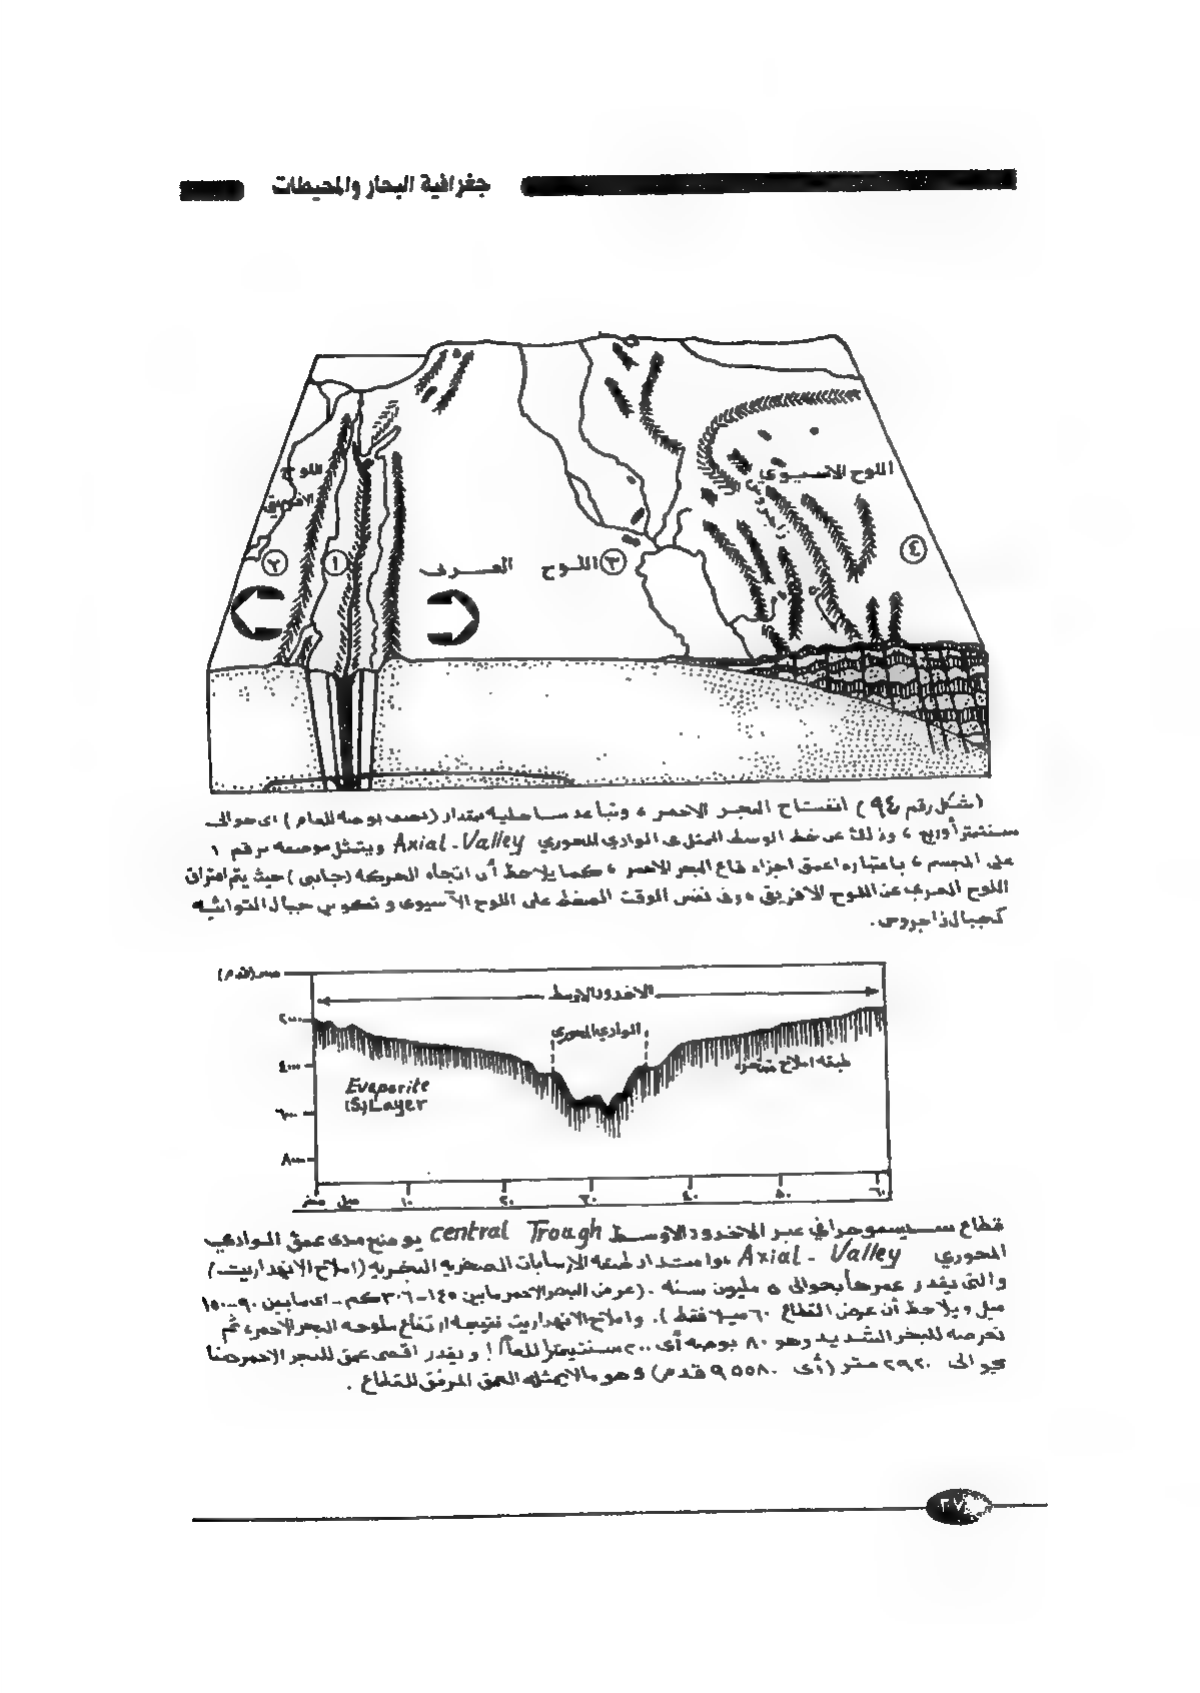 جغرافية البحار والمحيطات
اللوح
الافريقي
٢
١
اللوح العربي
٣
اللوح الآسيوي
زاجروس
٤
(شكل رقم ٩٤) انفتاح البحر الاحمر ، وتباعد ساحليه بمقدار (نصف بوصه للعام) اى حوالى
سنتيمتر أوربع ، وذلك عن خط الوسط الممثل فى الوادي المحوري Axial-Valley ويتمثل موضعه برقم ١
على المجسم ، باعتباره اعمق اجزاء قاع البحر الاحمر ، كما يلاحظ أن اتجاه الحركه (جانبى) حيث يتم افتراق
اللوح العربى عن اللوح الافريقى ، وفى نفس الوقت الضغط على اللوح الآسيوى و تكوين جبال التوائيه
كجبال زاجروس.
صفر (قدم)
الاخدود الاوسط
٢٠٠٠
الوادي المحورى
٤٠٠٠
طبقه املاح متبخره
Evaporite
(S) Layer
٦٠٠٠
٨٠٠٠
صفر ميل ١٠ ٢٠ ٣٠ ٤٠ ٥٠ ٦٠
قطاع سيسموجرافي عبر الاخدود الاوسط central Trough يوضح مدى عمق الوادي
المحوري Axial - Valley ، وامتداد طبقه الارسابات الصخريه البخريه (املاح الانهدرايت)
والتى يقدر عمرها بحوالى ٥ مليون سنه . (عرض البحر الاحمر مابين ١٤٥-٣٠٦ كم - اى مابين ٩٠-١٥٠
ميل ويلاحظ أن عرض القطاع ٦٠ ميلا فقط ). واملاح الانهدرايت نتيجه ارتفاع ملوحه البحر الاحمر، ثم
تعرضه للبخر الشديد وهو ٨٠ بوصه أى ٢٠٠ سنتيمترا للعام! ويقدر اقصى عمق للبحر الاحمر هنا
بحوالى ٢٩٢٠ متر (أى ٩٥٥٨٠ قدم) وهو مالايمثله العمق المرفق للقطاع .
٢٧